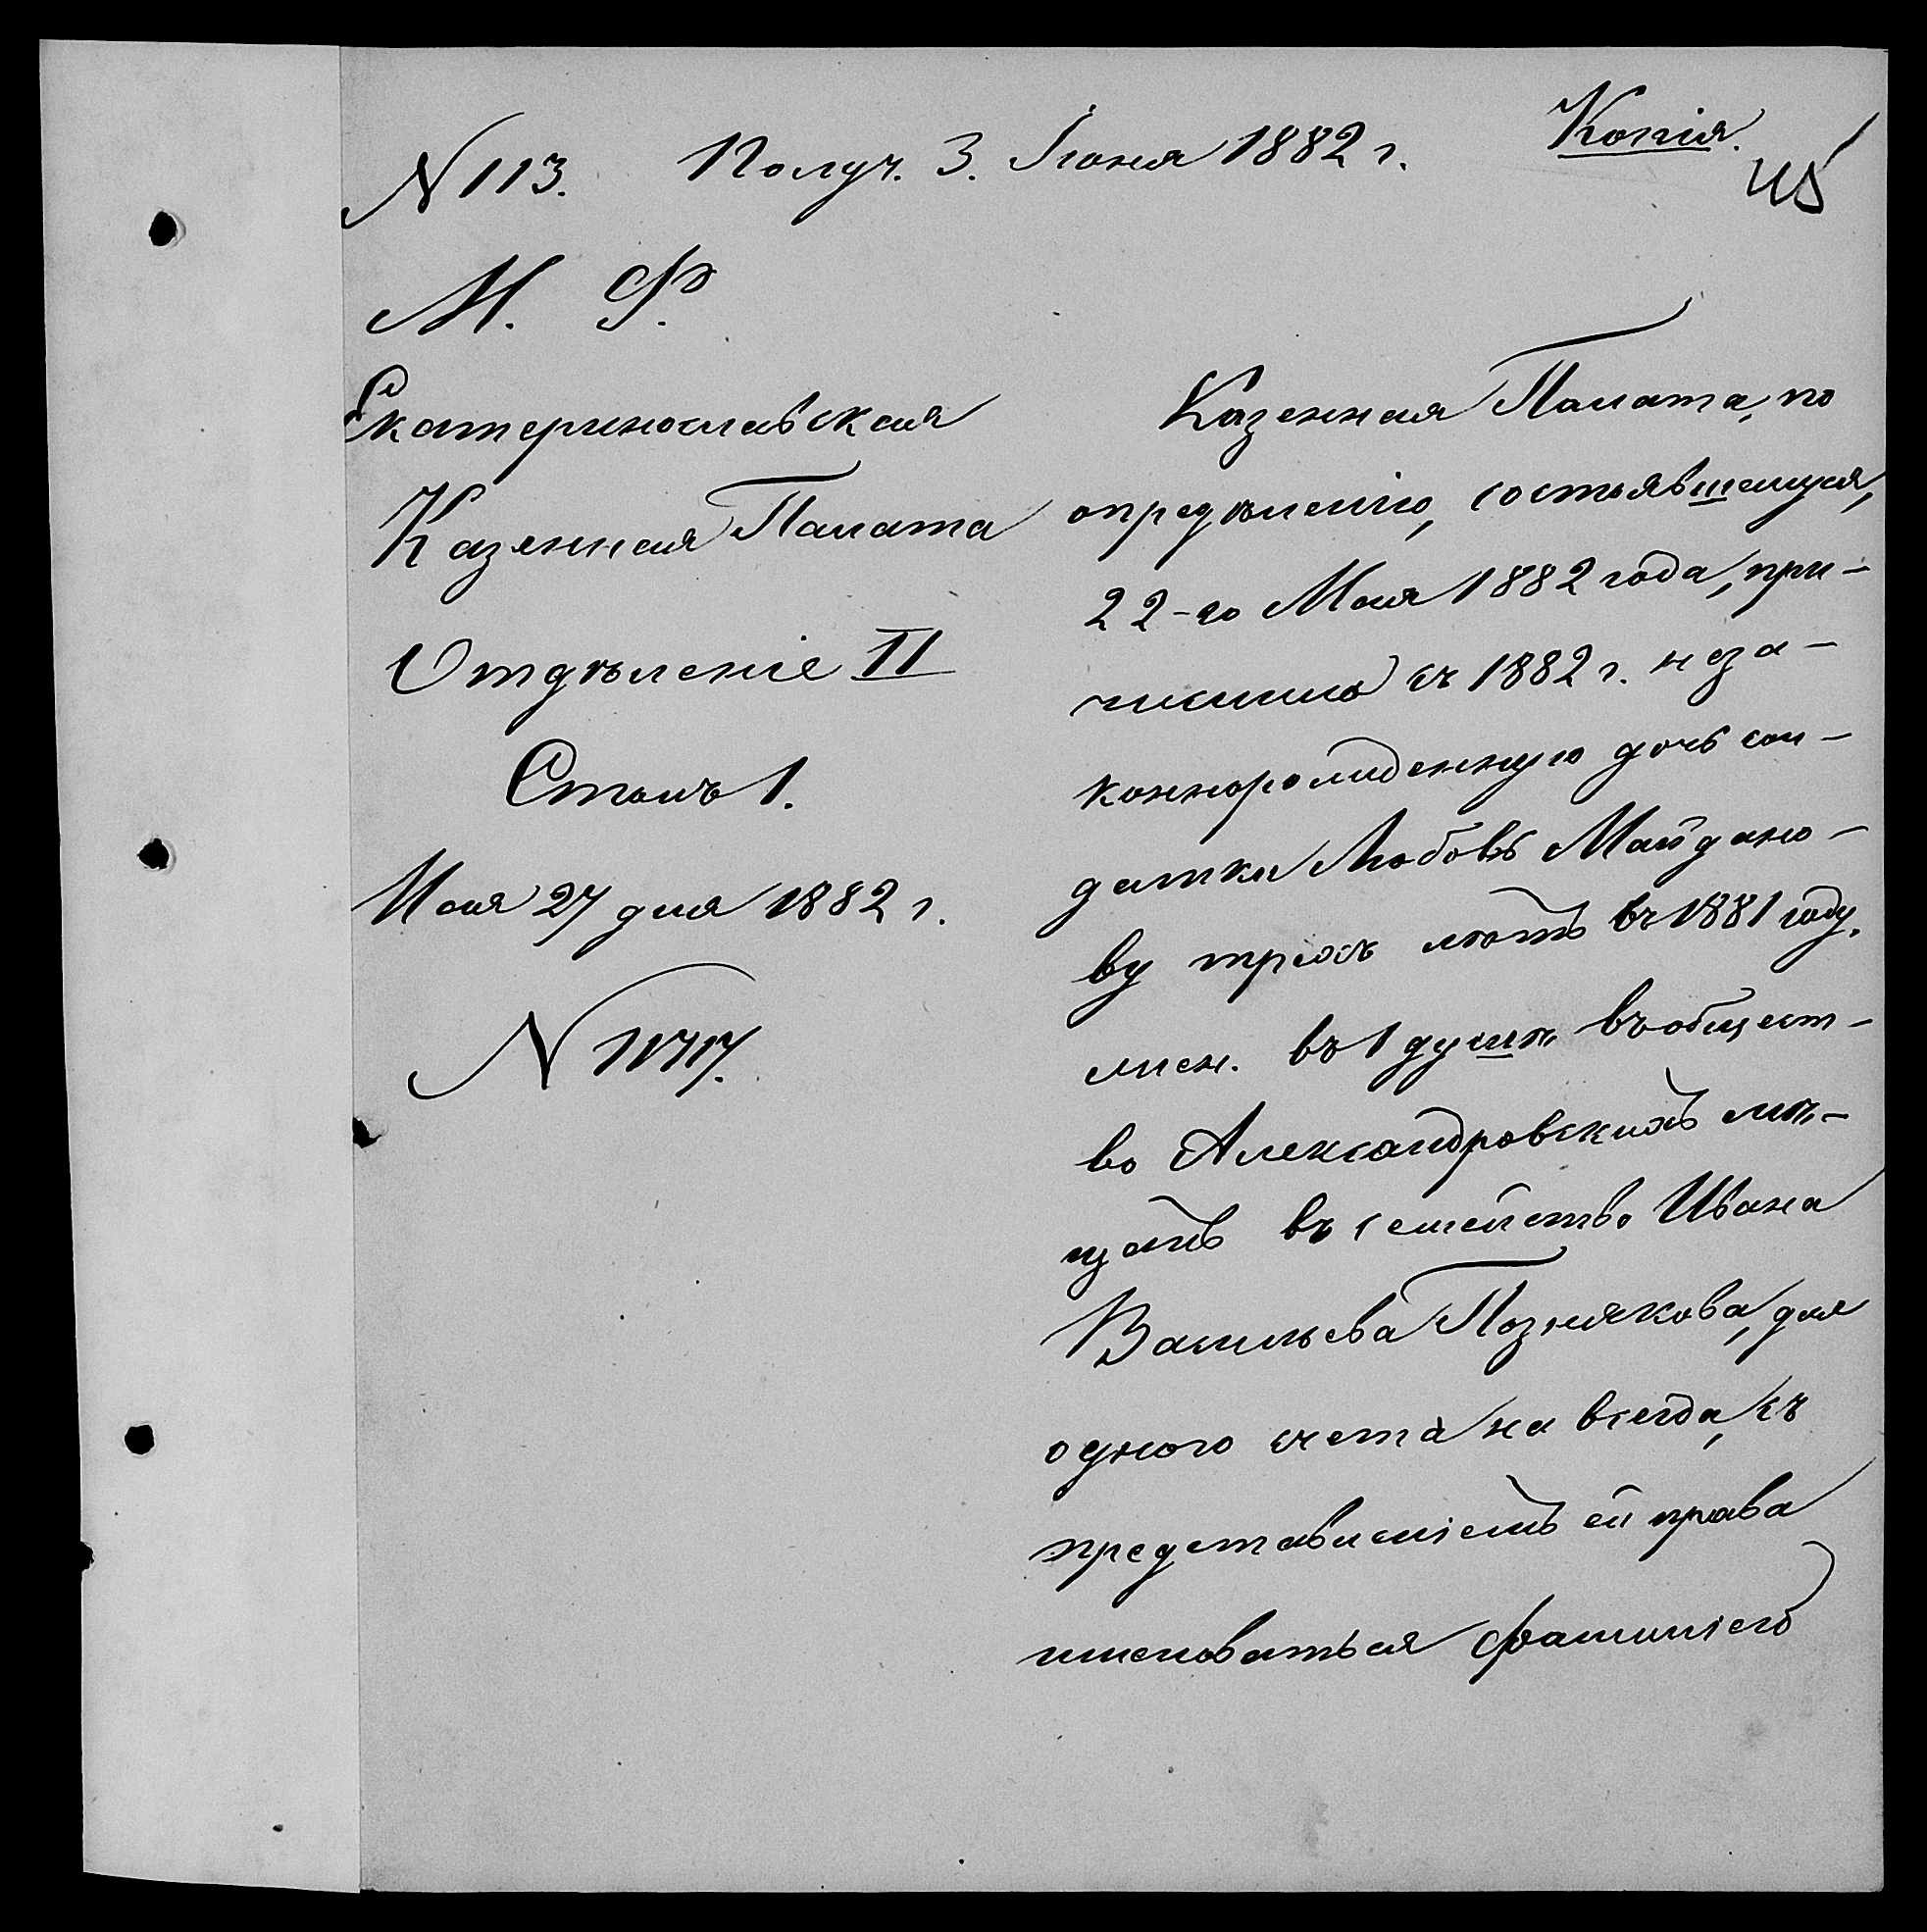 Копія.
N 113. Получ. 3. Іюня 1882 г.
45
М. Ф.
Екатеринославская
Казенная Палата
Отдѣленіе II
Столъ 1.
Мая 27 дня 1882 г.
N 11717.
Казенная Палата, по
опредѣленію, состоявшемуся,
22-го Мая 1882 года, при-
числила съ 1882 г. неза-
коннорожденную дочь сол-
датки Любовь Майдано-
ву трехъ лѣтъ въ 1881 году.
жен. въ 1 душѣ въ общест-
во Александровскихъ мѣ-
щанъ въ семейство Ивана
Васильева Познякова, для
одного счета на всегда, съ
представленіемъ ей права
именоваться фамиліею